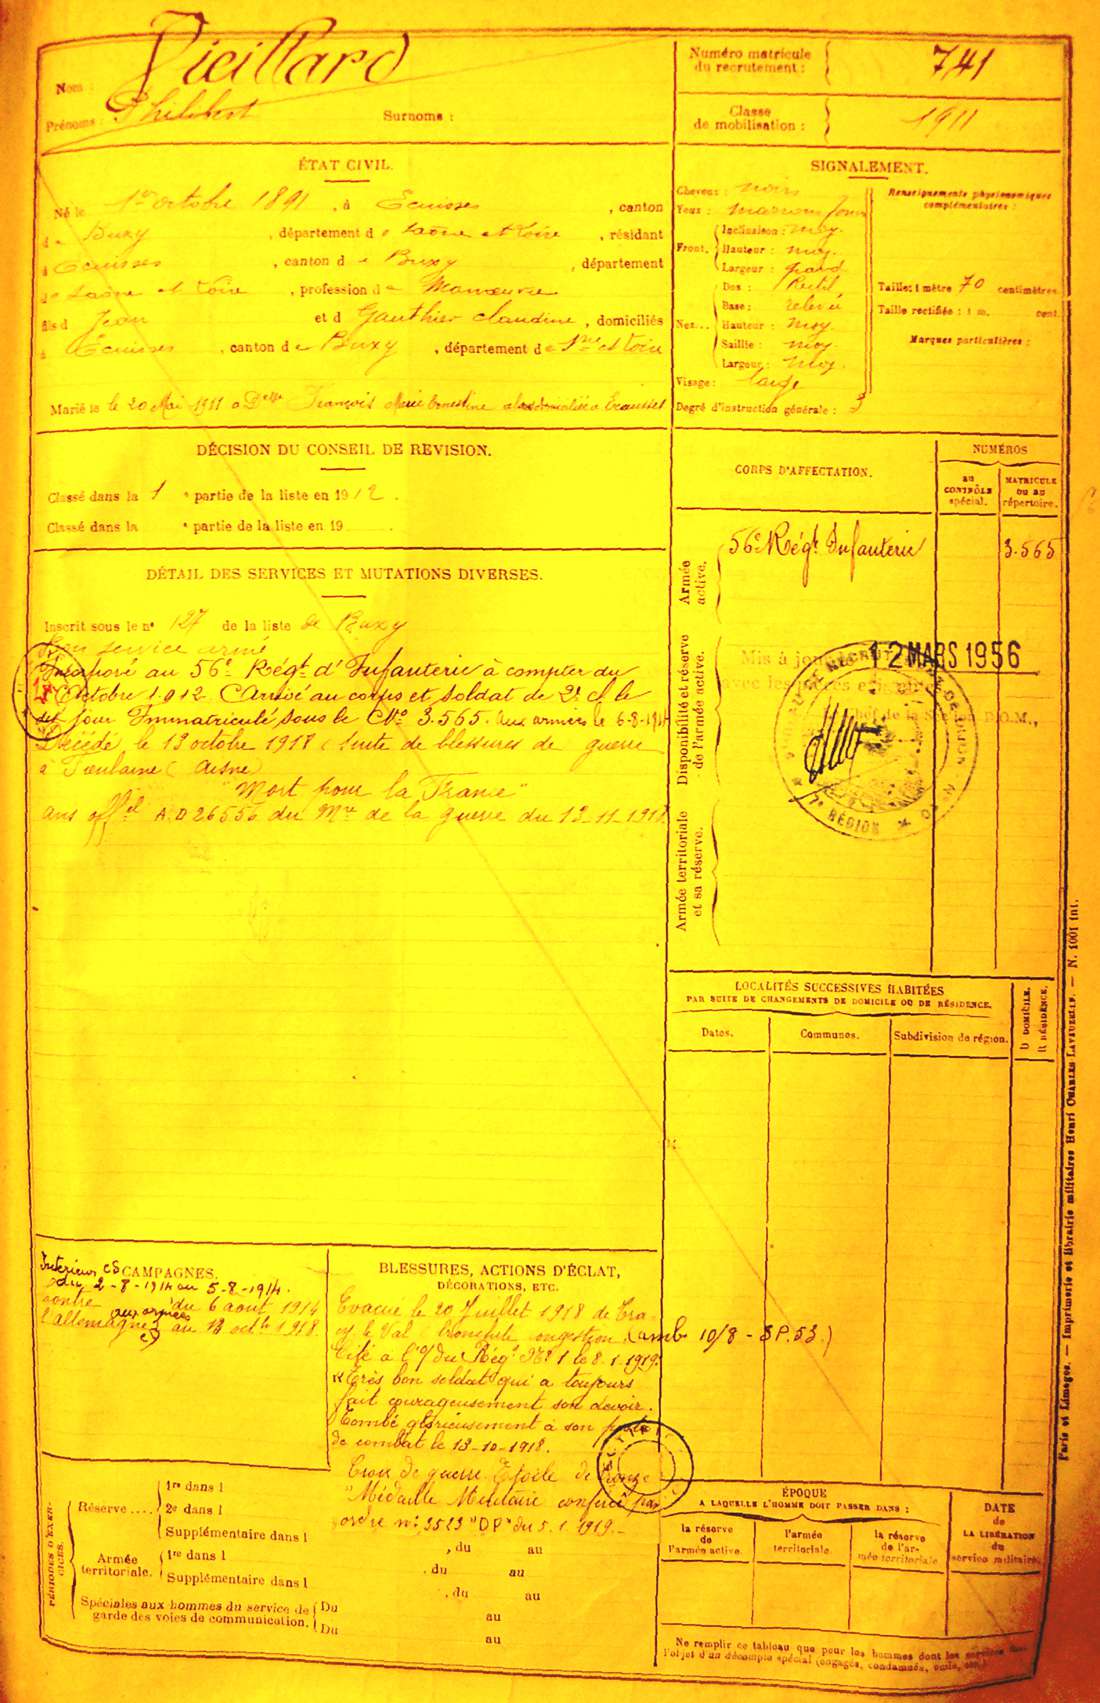 Nom : Vieillard
Prénoms : Philibert Surnoms :
Numéro matricule du recrutement : 741
Classe de mobilisation : 1911
ÉTAT CIVIL.
Né le 1er octobre 1891, à Ecuisses, canton
de Buxy, département de Saône et Loire, résidant
à Ecuisses, canton de Buxy, département
de Saône et Loire, profession de Manœuvre
fils d Jean et d Gauthier Claudine, domiciliés
à Écuisses, canton de Buxy, département de Sne et Loire
Marié le 20 Mai 1911 à Delle François Marie Ernestine
SIGNALEMENT.
Cheveux : noirs
Yeux : marrons
Front. Inclinaison : moy.
Hauteur : moy.
Largeur : grand
Nez... Dos : Rectil
Base : relevé
Hauteur : moy
Saillie : moy
Largeur : moy.
Visage : large
Degré d'instruction générale : 3
Renseignements physionomiques
complémentaires :
Taille : 1 mètre 70 centimètres.
Taille rectifiée : 1 m. cent.
Marques particulières :
DÉCISION DU CONSEIL DE REVISION.
Classé dans la 1e partie de la liste en 1912.
Classé dans la e partie de la liste en 19
DÉTAIL DES SERVICES ET MUTATIONS DIVERSES.
Inscrit sous le n° 127 de la liste de Buxy
Bon service armé
Incorporé au 56e Régt d'Infanterie à compter du
Octobre 1912. Arrivé au corps et soldat de 2e cl le
dit jour Immatriculé sous le No 3.565. aux armées le 6-8-1914
Décédé le 13 octobre 1918 (suite de blessures de guerre
à (Aisne)
"Mort pour la France"
offel A.D 26556 du Mre de la guerre du 13-11-1918
CORPS D'AFFECTATION.
NUMÉROS
AU CONTRÔLE spécial.
MATRICULE OU AU répertoire.
Armée active.
56e Régt Infanterie 3.565
Disponibilité et réserve de l'armée active.
Mis à jour 12 MARS 1956
avec les
Chef de la Section R.O.M.,
7e RÉGION
Armée territoriale et sa réserve.
LOCALITÉS SUCCESSIVES HABITÉES
PAR SUITE DE CHANGEMENTS DE DOMICILE OU DE RÉSIDENCE.
Dates.
Communes.
Subdivision de région.
D DOMICILE.
R RÉSIDENCE.
CAMPAGNES.
Intérieur CS
du 2-8-1914 au 5-8-1914.
contre du 6 août 1914
l'allemagne aux armées au 13 octbre 1918.
BLESSURES, ACTIONS D'ÉCLAT,
DÉCORATIONS, ETC.
Evacué le 20 Juillet 1918 de
le Val congestion. (amb 10/8 - SP.53.)
Cité à l'o/ du Régt No 1 le 8.1.1919.
"Très bon soldat qui a toujours
fait courageusement son devoir.
Tombé glorieusement à son poste
de combat le 13-10-1918.
Croix de guerre Etoile de bronze
"Médaille Militaire conféré par
ordre no 3513 "DP" du 5.1.1919.
PÉRIODES D'EXERCICES.
Réserve .... 1re dans l
2e dans l
Supplémentaire dans l
Armée territoriale. 1re dans l , du au
Supplémentaire dans l , du au
Spéciales aux hommes du service de garde des voies de communication. Du , du au
au
Du au
ÉPOQUE
A LAQUELLE L'HOMME DOIT PASSER DANS :
la réserve de l'armée active.
l'armée territoriale.
la réserve de l'armée territoriale
DATE
de
LA LIBÉRATION
du
service militaire.
Ne remplir ce tableau que pour les hommes dont les services font
l'objet d'un décompte spécial (engagés, condamnés, omis, etc.)
Paris et Limoges. — Imprimerie et librairie militaires Henri CHARLES-LAVAUZELLE. — N. 1001 int.